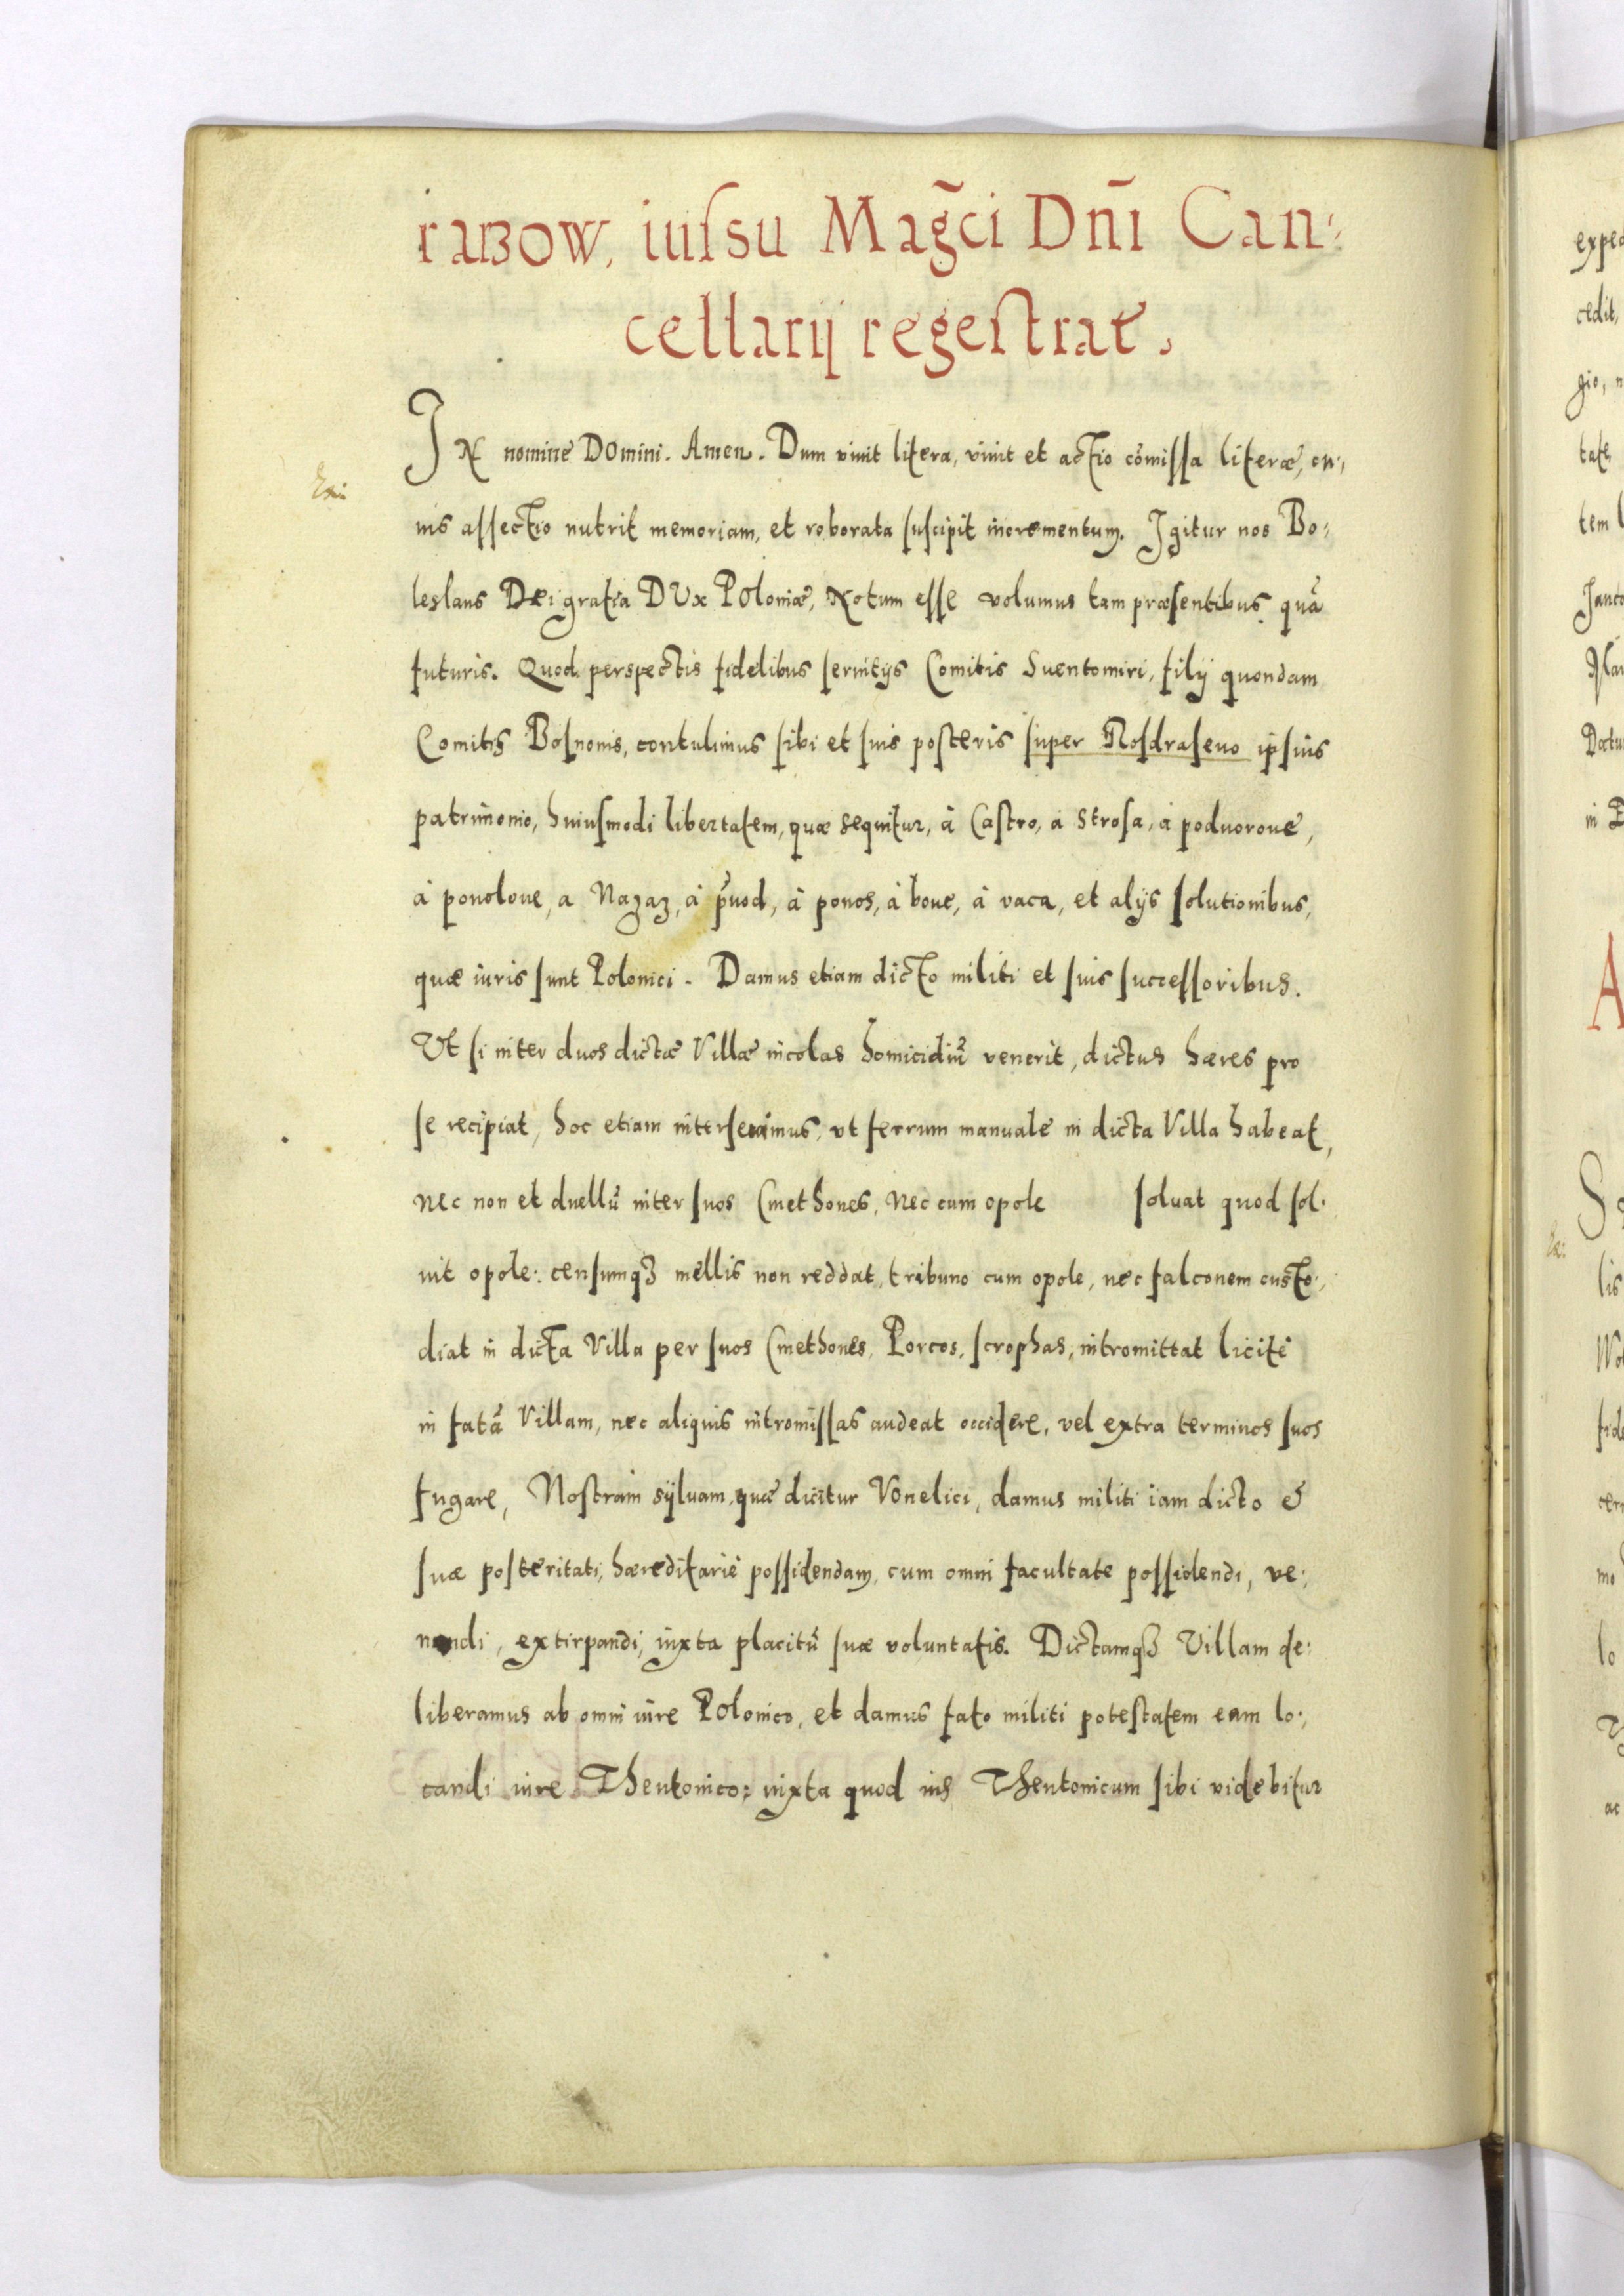 raBow, iuſsu Mag̃ci Dñi Can:
cellarij regeſtrate.
IN nomine DOmini. Amen. Dum viuit litera, viuit et actio cõmiſſa literæ, cu:,
ius aſſectio nutrit memoriam, et roborata ſuſcipit incrementum. Igitur nos Bo:
leslaus Dei gratia DUx POloniæ, Notum eſſe volumus tam præſentibus quã
futuris. Quod perspectis fidelibus ſeruitijs Comitis Suentomiri, filij quondam
Comitis Boſnonis, contulimus ſibi et ſuis poſteris ſuper Noſdraſeuo ipſius
patrimonio, huiuſmodi libertatem, quæ sequitur, à Caſtro, a Stroſa, a poduoroue,
à pouoloue, a Nazaz, à p̃uod, à ponos, à boue, à vaca, et alijs ſolutionibus,
quæ iuris ſunt Polonici. Damus etiam dicto militi et ſuis ſucceſſoribus.
Ut ſi inter duos dictæ Villæ incolas homicidiũ venerit, dictus hæres pro
ſe recipiat, hoc etiam interſerimus, vt ferrum manuale in dicta Villa habeat,
nec non et duellũ inter ſuos Cmethones, nec cum opole ſoluat quod ſol:
uit opole: cenſumqȝ mellis non reddat, tribuno cum opole, nec falconem cuſto:,
diat in dicta Villa per ſuos Cmethones, Porcos, ſcrophas, intromittat licitè
in fatã Villam, nec aliquis intromiſſas audeat occidere, vel extra terminos ſuos
fugare, Noſtram sÿluam, quæ dicitur VOnelici, damus militi iam dicto &
ſuæ poſteritati, hæreditariè poſſidendam, cum omni facultate poſſidendi, ve:,
nandi, extirpandi, iuxta placitũ ſuæ voluntatis. Dictamqȝ Villam de:
liberamus ab omni iure POlonico, et damus fato militi poteſtatem eam lo:,
candi iure Theutonico: iuxta quod ius Theutonicum ſibi videbitur